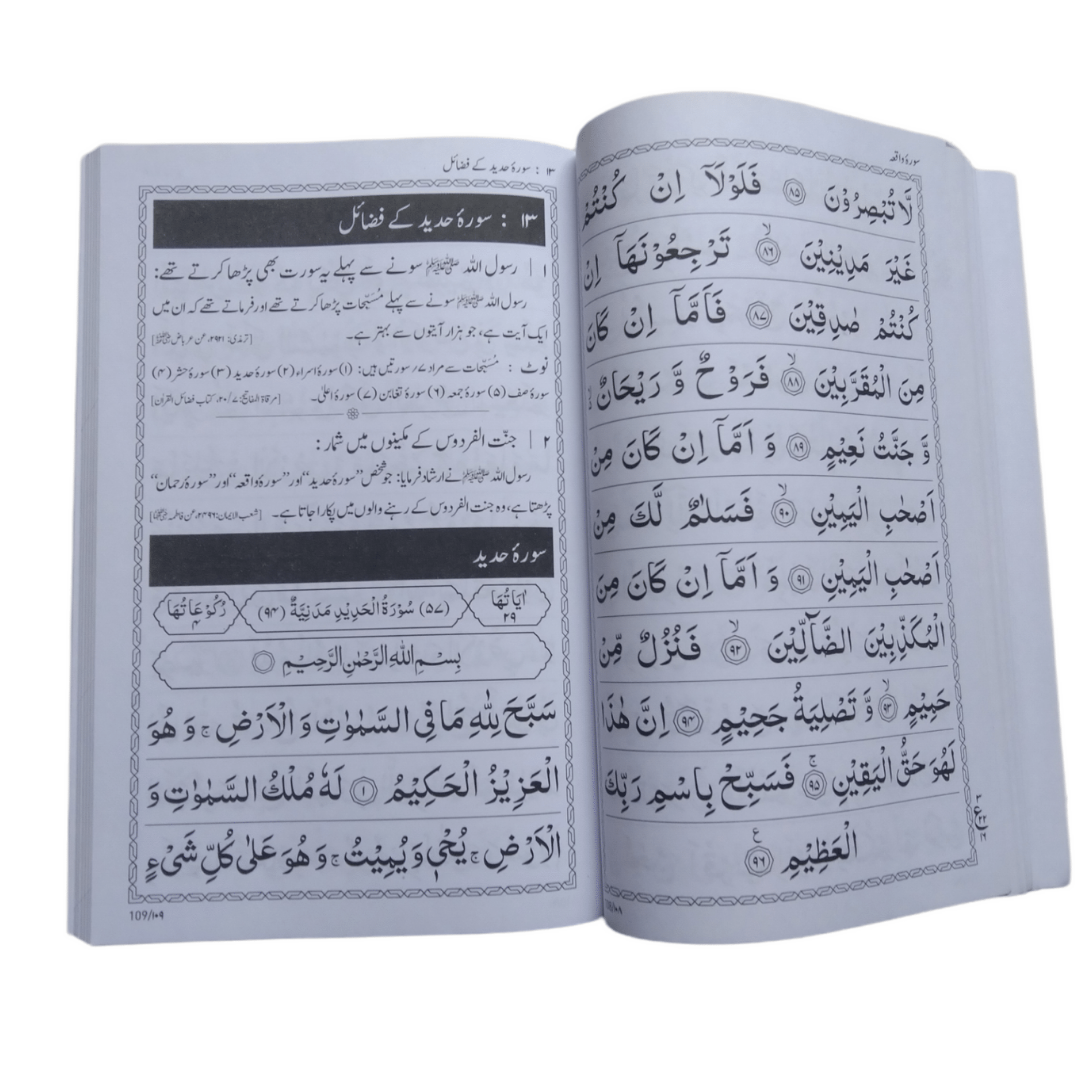 سورۂ واقعہ
لَّا تُبْصِرُوْنَ ۝۸۵ فَلَوْلَاۤ اِنْ كُنْتُمْ
غَيْرَ مَدِيْنِيْنَ ۝۸۶ۙ تَرْجِعُوْنَهَاۤ اِنْ
كُنْتُمْ صٰدِقِيْنَ ۝۸۷ فَاَمَّاۤ اِنْ كَانَ
مِنَ الْمُقَرَّبِيْنَ ۝۸۸ۙ فَرَوْحٌ وَّ رَيْحَانٌ
وَّ جَنَّتُ نَعِيْمٍ ۝۸۹ وَ اَمَّاۤ اِنْ كَانَ مِنْ
اَصْحٰبِ الْيَمِيْنِ ۝۹۰ۙ فَسَلٰمٌ لَّكَ مِنْ
اَصْحٰبِ الْيَمِيْنِ ۝۹۱ وَ اَمَّاۤ اِنْ كَانَ مِنَ
الْمُكَذِّبِيْنَ الضَّآلِّيْنَ ۝۹۲ۙ فَنُزُلٌ مِّنْ
حَمِيْمٍ ۝۹۳ۙ وَّ تَصْلِيَةُ جَحِيْمٍ ۝۹۴ اِنَّ هٰذَا
لَهُوَ حَقُّ الْيَقِيْنِ ۝۹۵ۚ فَسَبِّحْ بِاسْمِ رَبِّكَ
الْعَظِيْمِ ۝۹۶
۱۳ : سورۂ حدید کے فضائل
۱۳ : سورۂ حدید کے فضائل
۱ | رسول اللہ ﷺ سونے سے پہلے یہ سورت بھی پڑھا کرتے تھے:
رسول اللہ ﷺ سونے سے پہلے مُسَبِّحات پڑھا کرتے تھے اور فرماتے تھے کہ ان میں
ایک آیت ہے، جو ہزار آیتوں سے بہتر ہے۔ [ترمذی: ۲۹۲۱، عن عرباض]
نوٹ : مُسَبِّحات سے مراد ۷؍ سورتیں ہیں: (۱) سورۂ اسراء (۲) سورۂ حدید (۳) سورۂ حشر (۴)
سورۂ صف (۵) سورۂ جمعہ (۶) سورۂ تغابن (۷) سورۂ اعلیٰ۔ [مرقاۃ المفاتیح: ۷/۲۰، کتاب فضائل القرآن]
۲ | جنّت الفردوس کے مکینوں میں شمار:
رسول اللہ ﷺ نے ارشاد فرمایا: جو شخص "سورۂ حدید" اور "سورۂ واقعہ" اور "سورۂ رحمان"
پڑھتا ہے، وہ جنت الفردوس کے رہنے والوں میں پکارا جاتا ہے۔ [شعب الایمان: ۲۴۹۶، عن فاطمہ]
سورۂ حدید
اٰيَاتُهَا ۲۹ (۵۷) سُوْرَةُ الْحَدِيْدِ مَدَنِيَّةٌ (۹۴) رُكُوْعَاتُهَا ۴
بِسْمِ اللهِ الرَّحْمٰنِ الرَّحِيْمِ
سَبَّحَ لِلّٰهِ مَا فِى السَّمٰوٰتِ وَ الْاَرْضِ ۚ وَ هُوَ
الْعَزِيْزُ الْحَكِيْمُ ۝۱ لَهٗ مُلْكُ السَّمٰوٰتِ وَ
الْاَرْضِ ۚ يُحْيٖ وَ يُمِيْتُ ۚ وَ هُوَ عَلٰى كُلِّ شَىْءٍ
109/۱۰۹